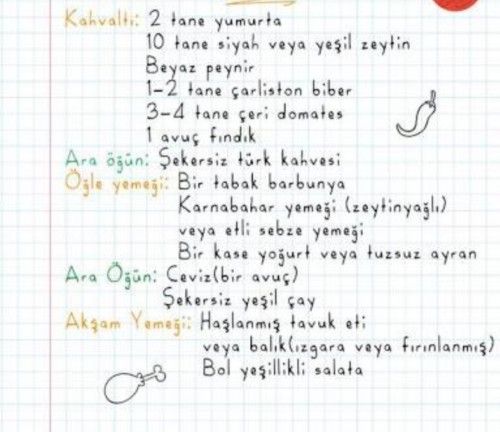 Kahvaltı: 2 tane yumurta
10 tane siyah veya yeşil zeytin
Beyaz peynir
1-2 tane çarliston biber
3-4 tane çeri domates
1 avuç fındık
Ara öğün: Şekersiz türk kahvesi
Öğle yemeği: Bir tabak barbunya
Karnabahar yemeği (zeytinyağlı)
veya etli sebze yemeği
Bir kase yoğurt veya tuzsuz ayran
Ara Öğün: Ceviz(bir avuç)
Şekersiz yeşil çay
Akşam Yemeği: Haşlanmış tavuk eti
veya balık(ızgara veya fırınlanmış)
Bol yeşillikli salata